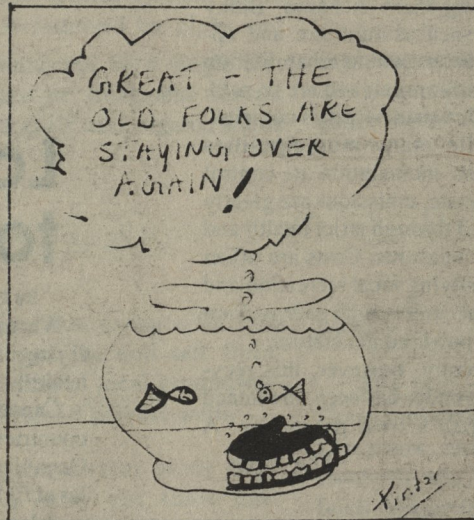 GREAT - THE
OLD FOLKS ARE
STAYING OVER
AGAIN!